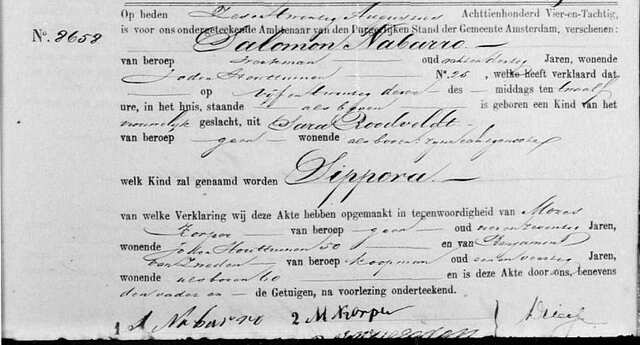 Op heden Zes en twintig Augustus Achttienhonderd Vier-en-Tachtig,
N°. 8658 is voor ons ondergeteekende Ambtenaar van den Burgerlijken Stand der Gemeente Amsterdam, verschenen:
Salomon Nabarro
van beroep oud Jaren, wonende
Joden Houttuinen N°. 26, welke heeft verklaard dat
op Vijf en twintig dezer des middags ten
ure, in het huis, staande als boven is geboren een Kind van het
vrouwelijk geslacht, uit Sara Roodveldt
van beroep geen wonende als boven zijne
welk Kind zal genaamd worden Sippora
van welke Verklaring wij deze Akte hebben opgemaakt in tegenwoordigheid van Mozes
Korper van beroep geen oud Jaren,
wonende Joden Houttuinen 50 en van Benjamin
van beroep koopman oud Jaren,
wonende als boven 60 en is deze Akte door ons, benevens
den vader en de Getuigen, na voorlezing onderteekend.
1 A Nabarro 2 M Korper